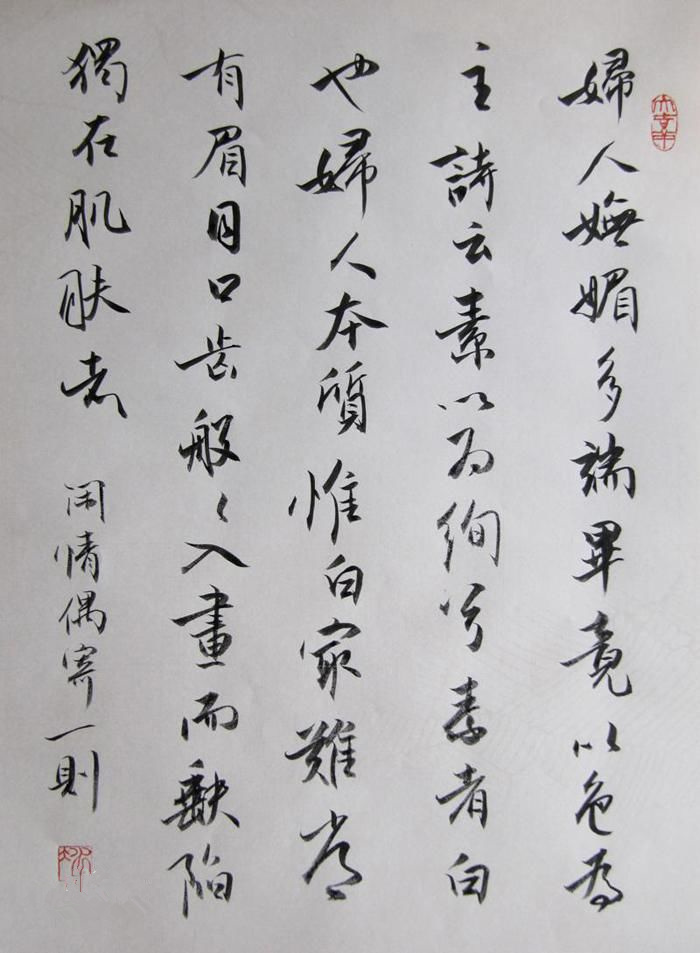 婦人嫵媚多端畢竟以色為
主詩云素以為絢兮素者白
也婦人本質惟白最難常
有眉目口齒般々入畫而缺陷
獨在肌膚者
閑情偶寄一則